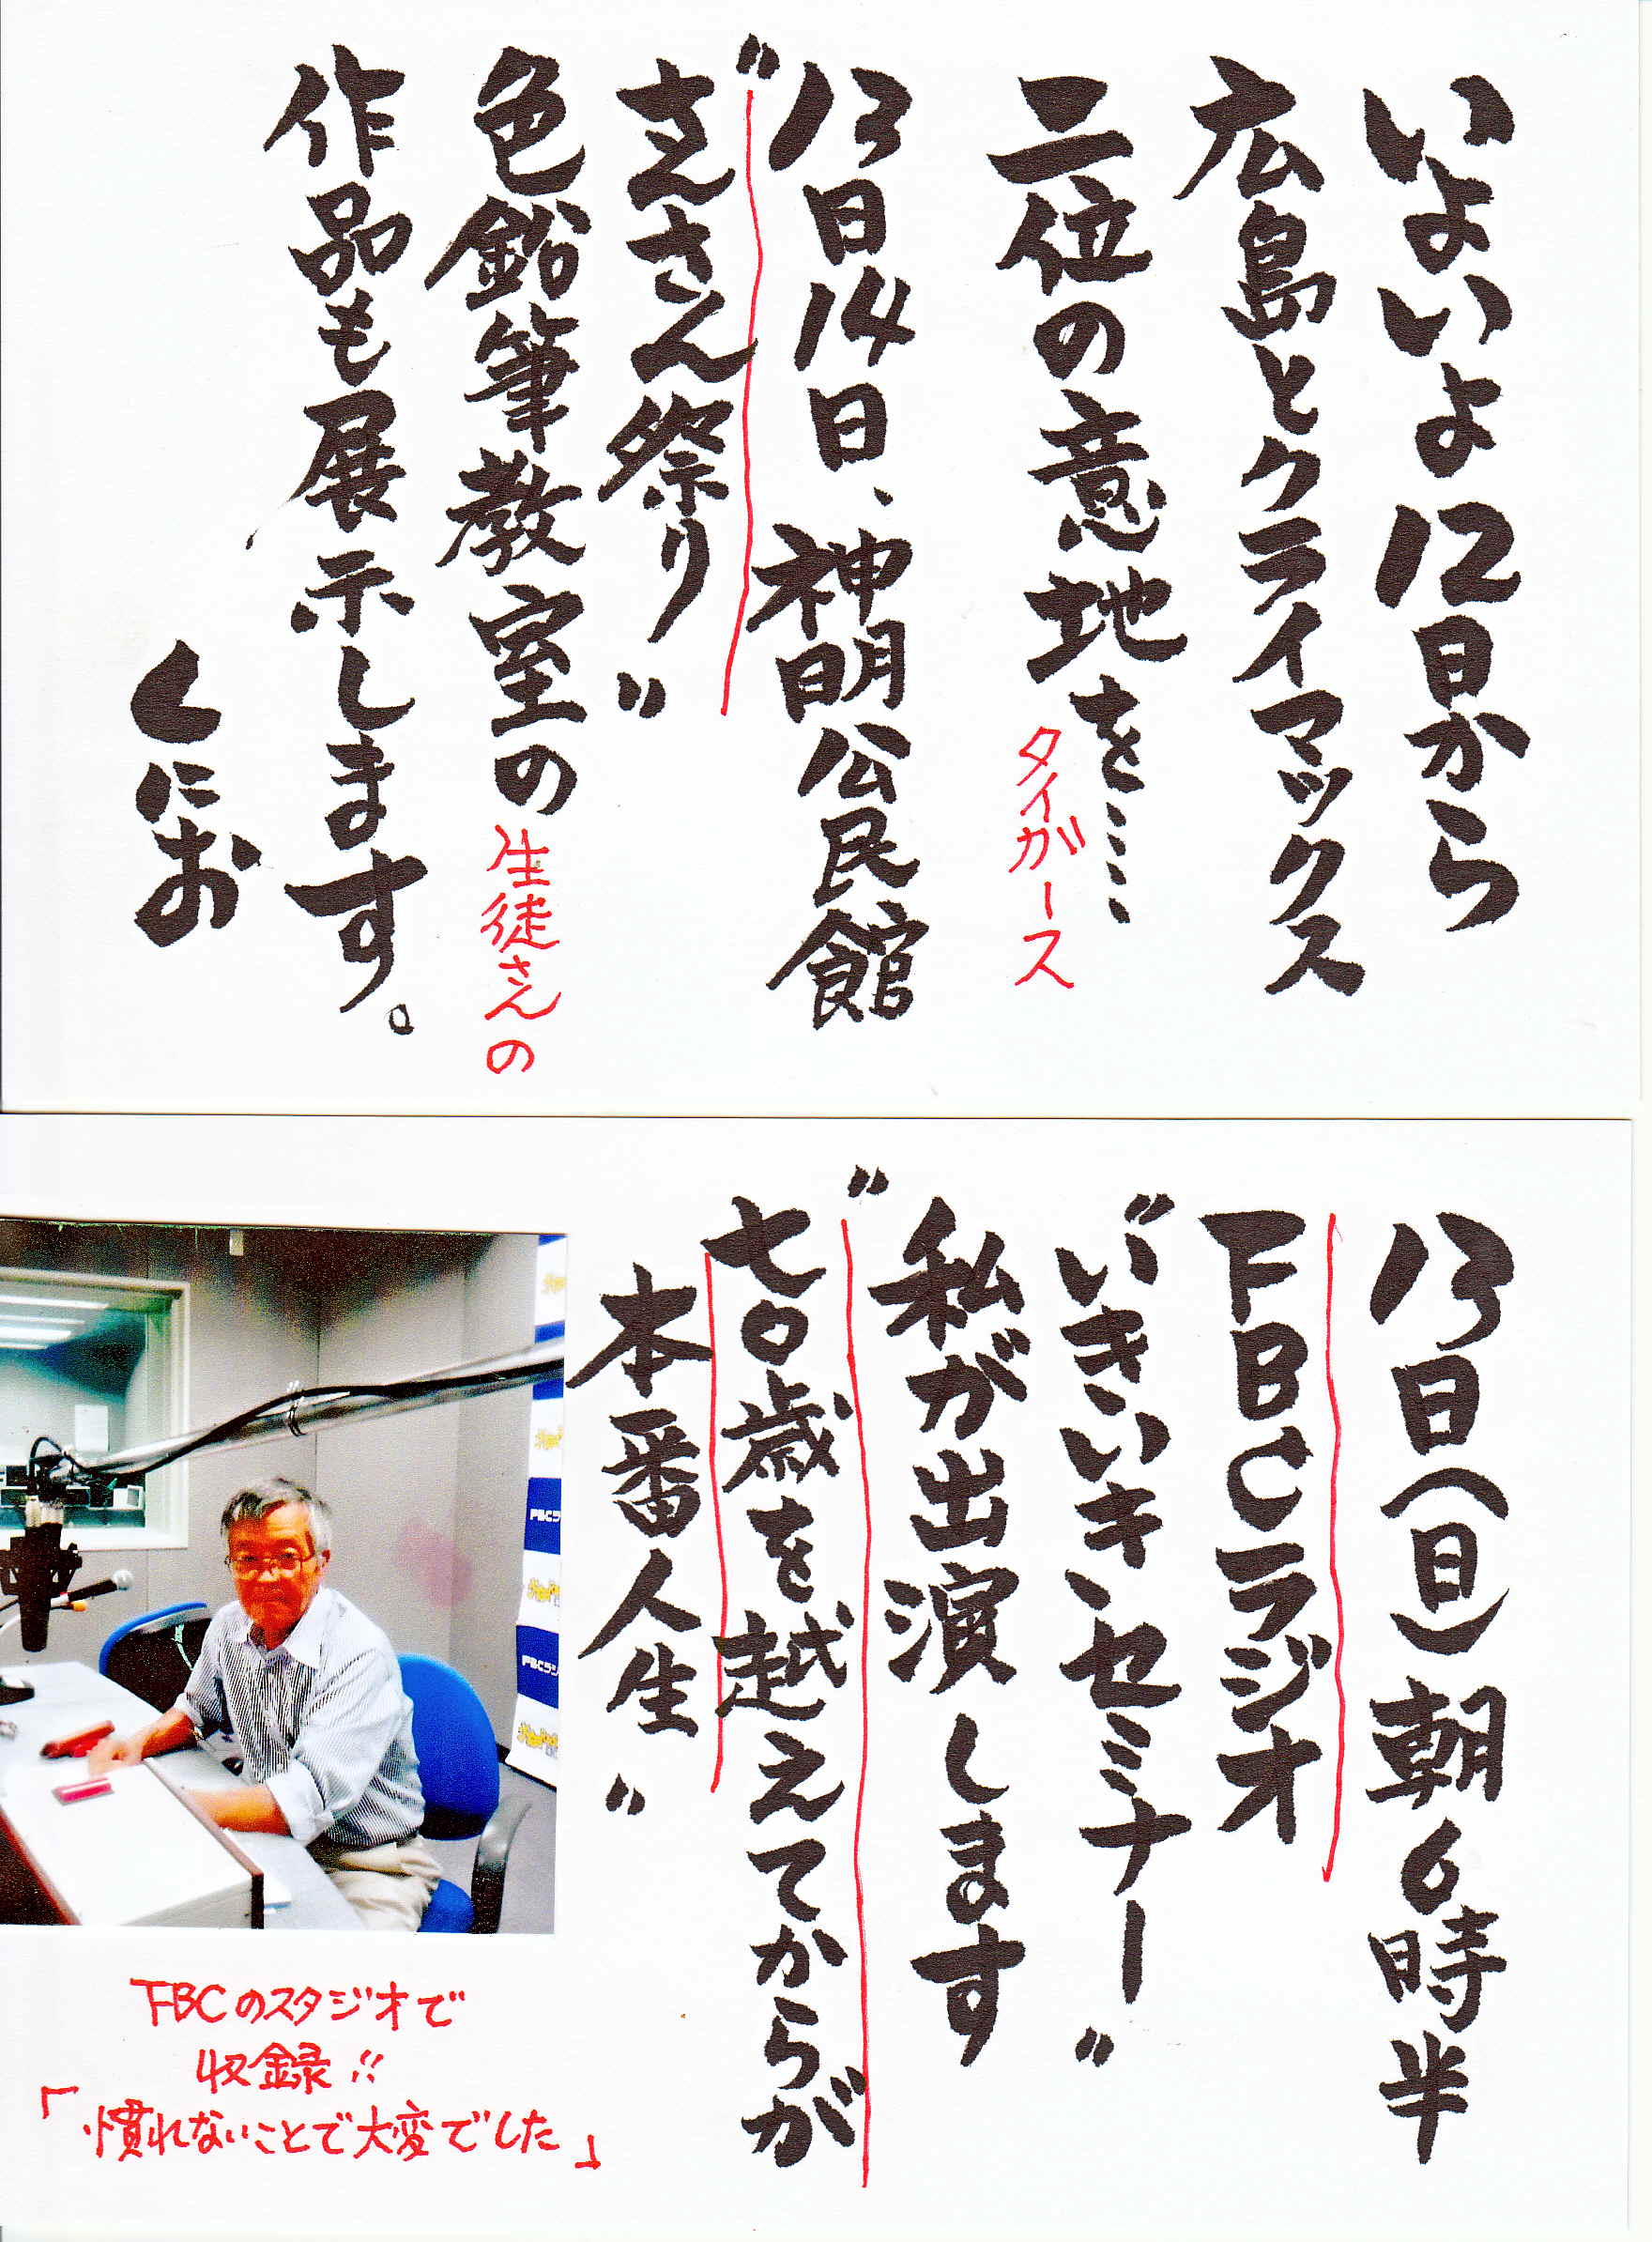 いよいよ12日から
広島とクライマックス
二位の意地を……
タイガース
13日14日、神明公民館
さん祭り〃
色鉛筆教室の
生徒さんの
作品も展示します。
くにお
13日(日)朝6時半
FBCラジオ
〃いきいきセミナー〃
私が出演します
〃七〇歳を越えてからが
本番人生〃
FBCのスタジオで
収録!!
「慣れないことで大変でした」
FBCラジ
FBCラジ